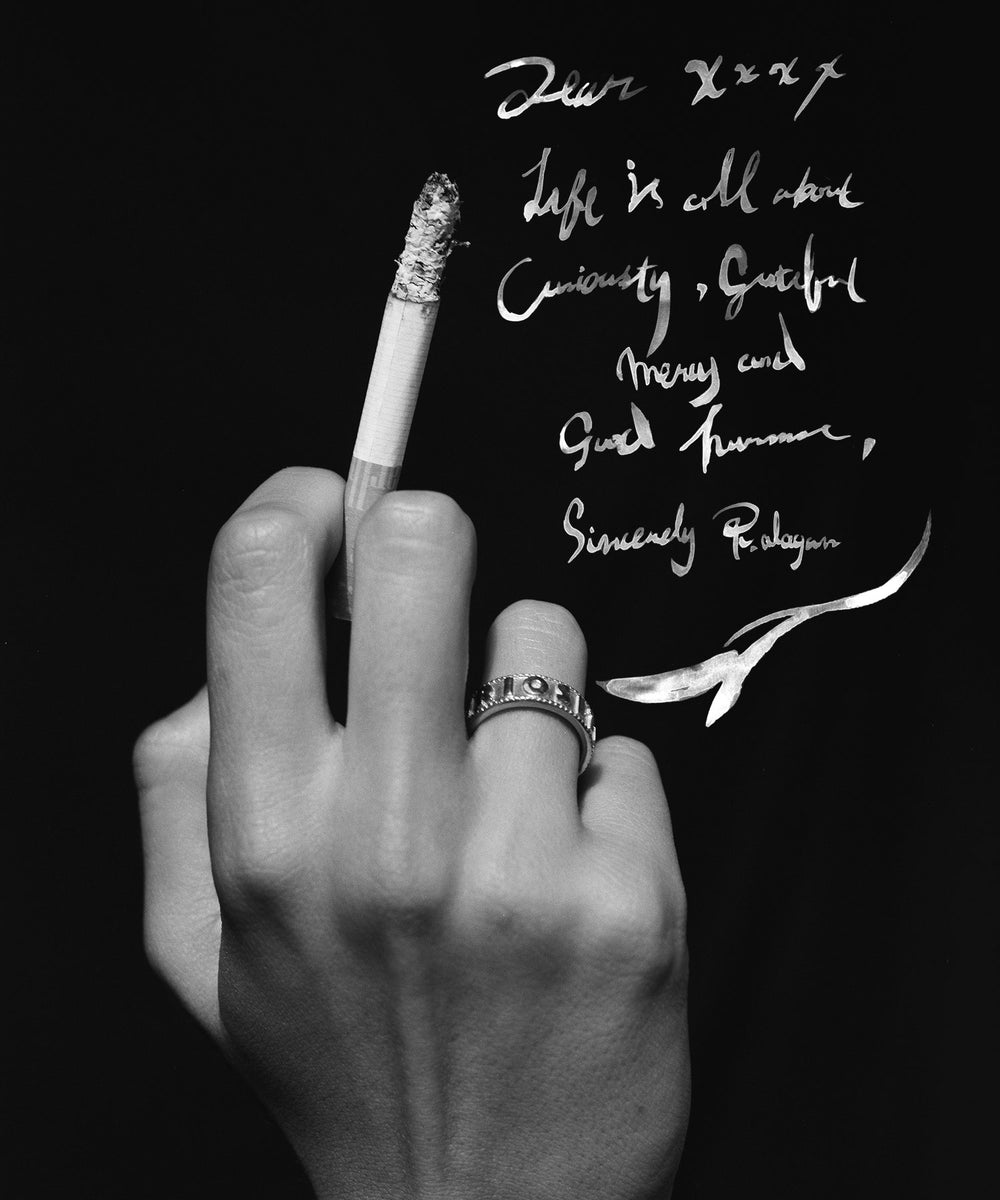 Dear xxxx
Life is all about
Curiousty, Grateful
mercy and
Good humour,
Sincerely P.alagan